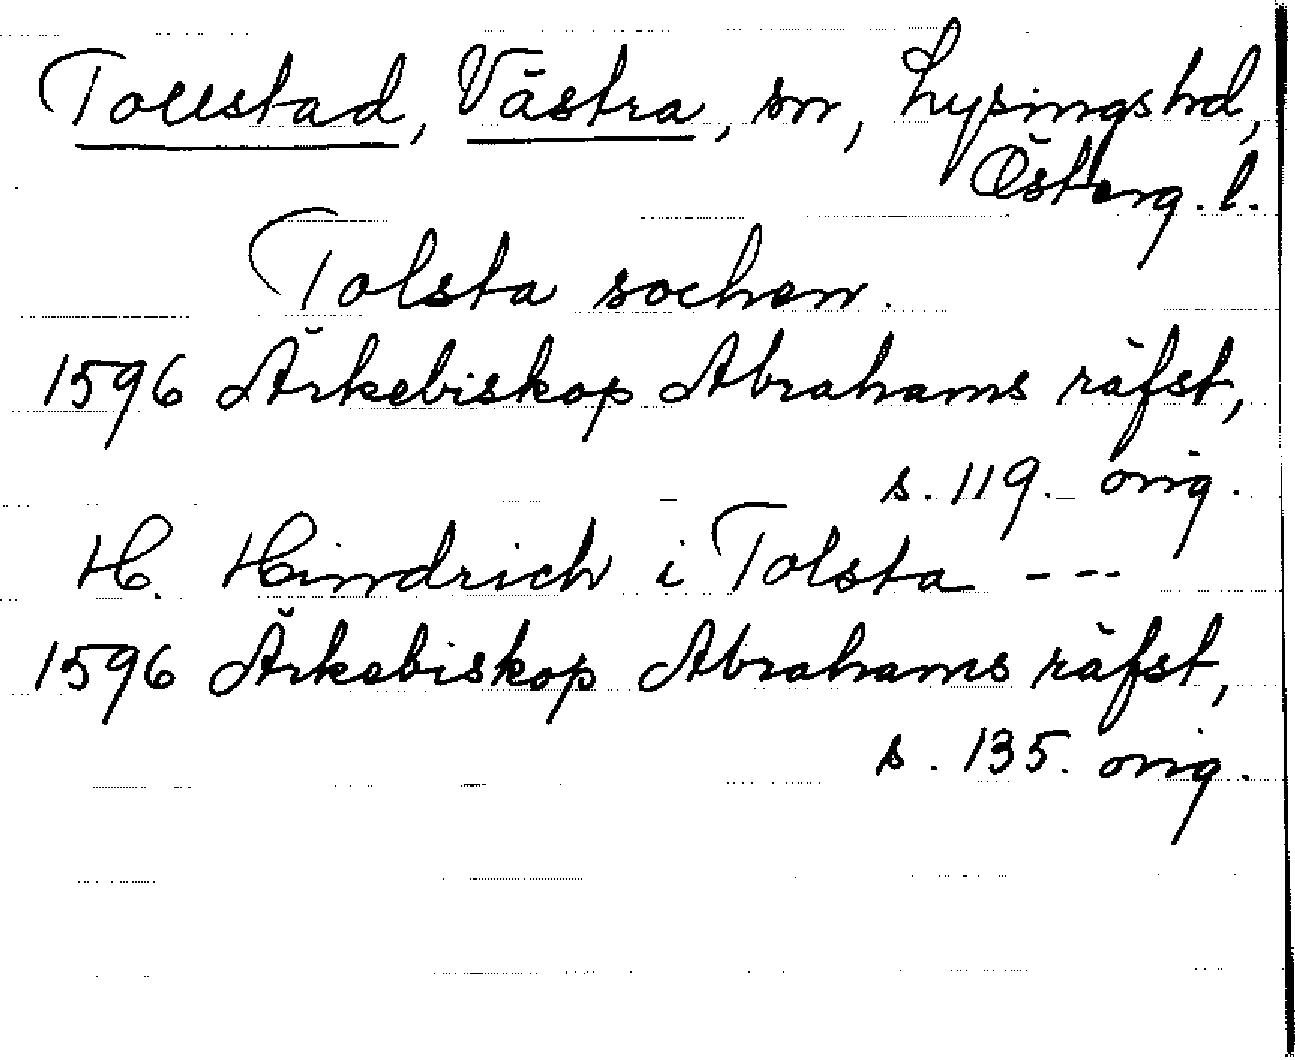 Tollstad, Västra, sn, Lysingshd,
Österg. l.
Tolsta sochen.
1596 Ärkebiskop Abrahams räfst,
s. 119. orig.
H. Hindrich i Tolsta ---
1596 Ärkebiskop Abrahams räfst,
s. 135. orig.